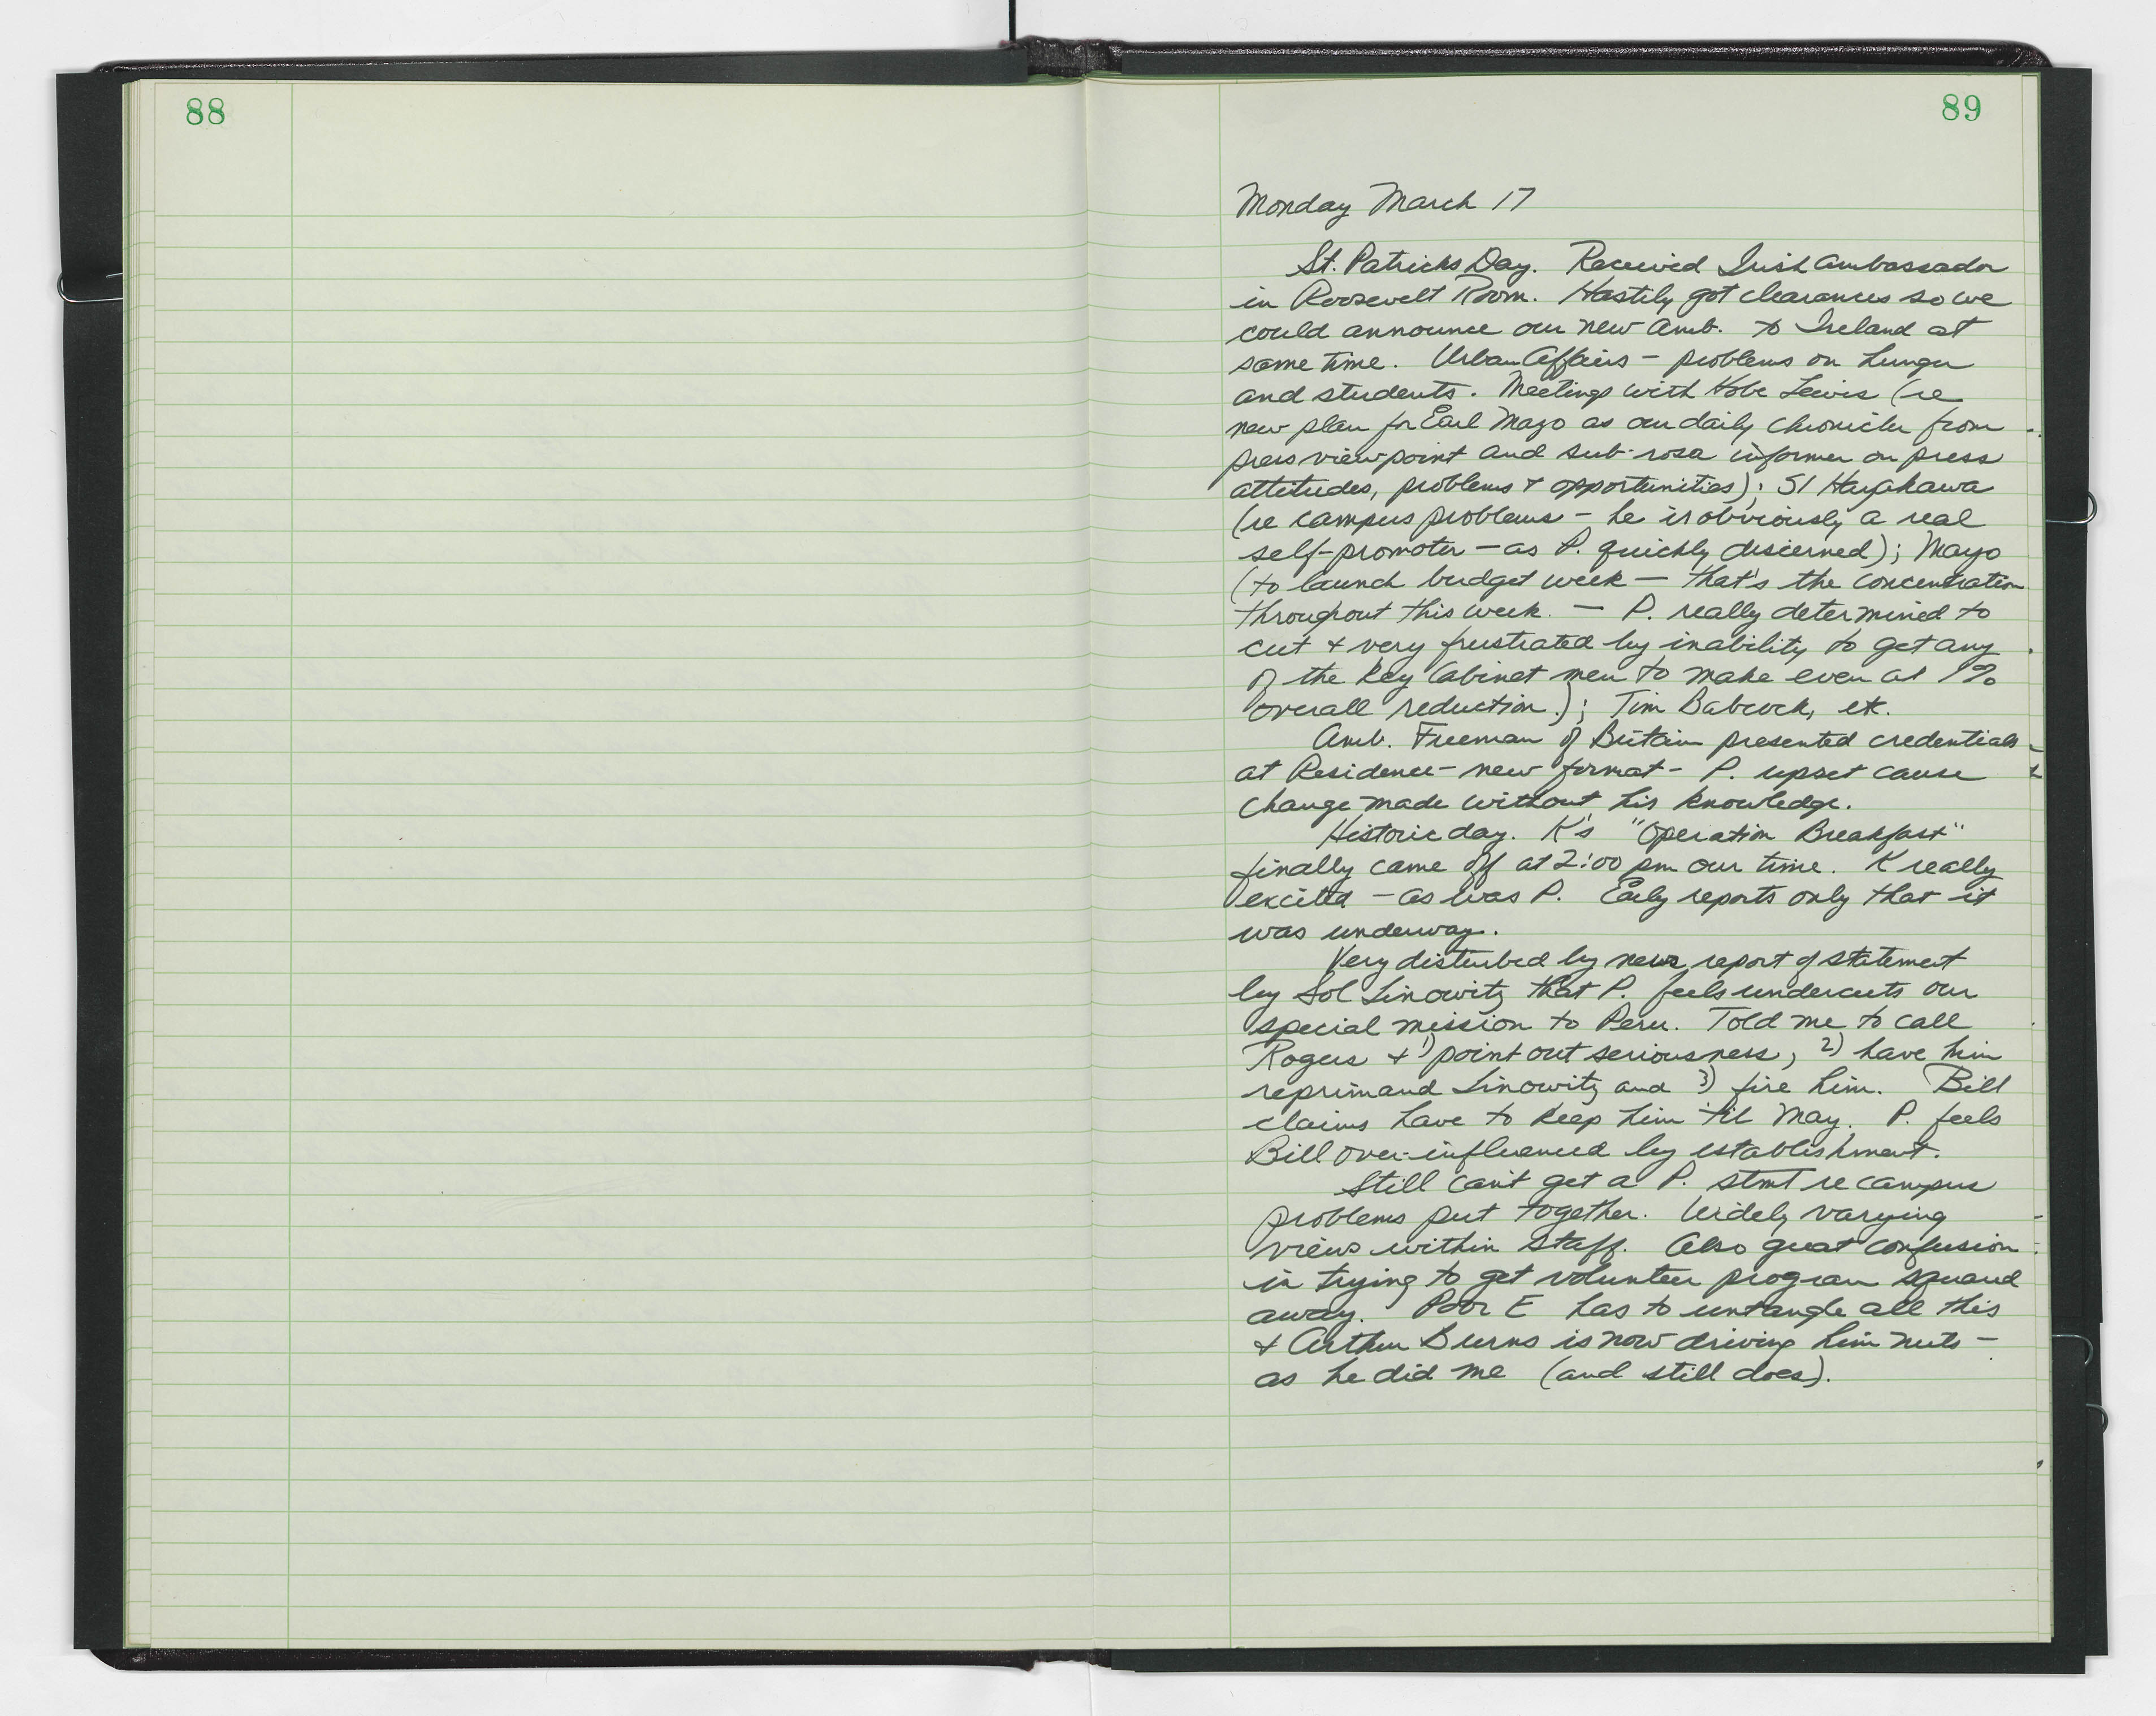 88
89
Monday March 17
St. Patricks Day. Received Irish Ambassador
in Roosevelt Room. Hastily got clearances so we
could announce our new Amb. to Ireland at
same time. Urban Affairs - problems on hunger
and students. Meetings with Hobe Lewis (re
new plan for Earl Mazo as our daily chronicler from
press viewpoint and sub-rosa informer on press
attitudes, problems & opportunities); SI Hayakawa
(re campus problems - he is obviously a real
self-promoter - as P. quickly discerned); Mayo
(to launch budget week - that's the concentration
throughout this week. - P. really determined to
cut & very frustrated by inability to get any
of the key Cabinet men to make even a 1%
overall reduction.); Tim Babcock, etc.
Amb. Freeman of Britain presented credentials
at Residence - new format - P. upset cause
change made without his knowledge.
Historic day. K's "Operation Breakfast"
finally came off at 2:00 pm our time. K really
excited - as was P. Early reports only that it
was underway.
Very disturbed by news report of statement
by Sol Linowitz that P. feels undercuts our
special mission to Peru. Told me to call
Rogers & 1) point out seriousness, 2) have him
reprimand Linowitz and 3) fire him. Bill
claims have to keep him 'til May. P. feels
Bill over-influenced by establishment.
Still can't get a P. stmt re campus
problems put together. Widely varying
views within staff. Also great confusion
in trying to get volunteer program squared
away. Poor E has to untangle all this
& Arthur Burns is now driving him nuts -
as he did me (and still does).